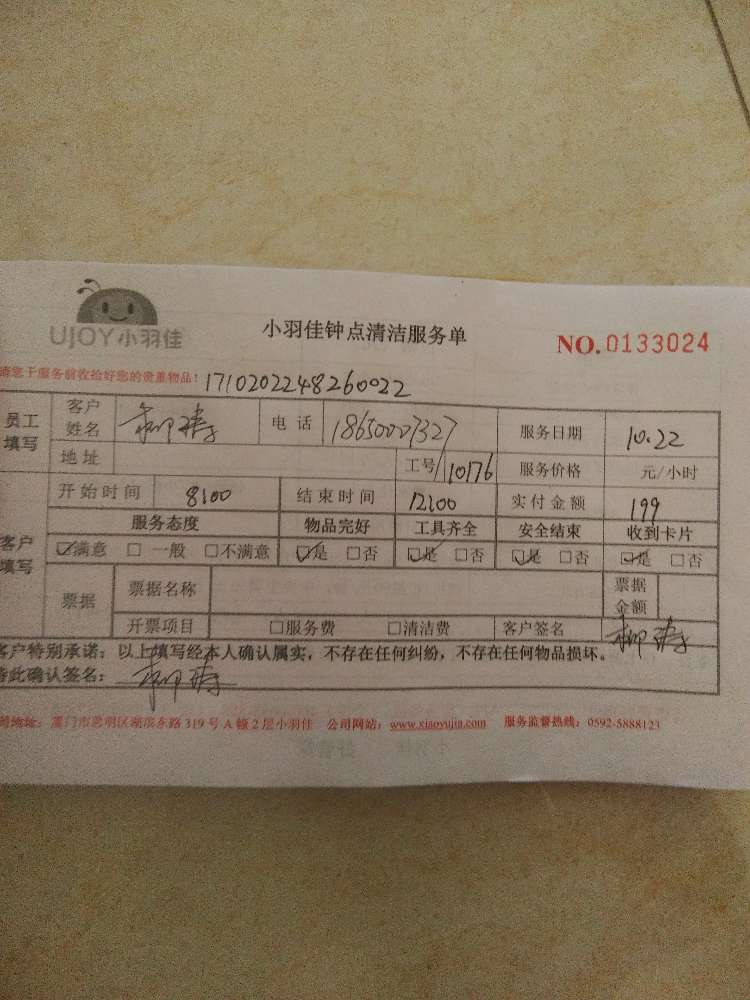 UJOY小羽佳
小羽佳钟点清洁服务单
NO.0133024
请您于服务前收拾好您的贵重物品! 1710202248260022
员工填写 客户姓名 电话 18650007327 服务日期 10.22
地址 工号 10176 服务价格 元/小时
客户填写 开始时间 8:00 结束时间 12:00 实付金额 199
服务态度 物品完好 工具齐全 安全结束 收到卡片
☑满意 □一般 □不满意 ☑是 □否 ☑是 □否 ☑是 □否 ☑是 □否
票据 票据名称 票据金额
开票项目 □服务费 □清洁费 客户签名
客户特别承诺:以上填写经本人确认属实,不存在任何纠纷,不存在任何物品损坏。
特此确认签名:
地址:厦门市思明区湖滨东路319号A幢2层小羽佳 公司网站:www.xiaoyujia.com 服务监督热线:0592-5888123